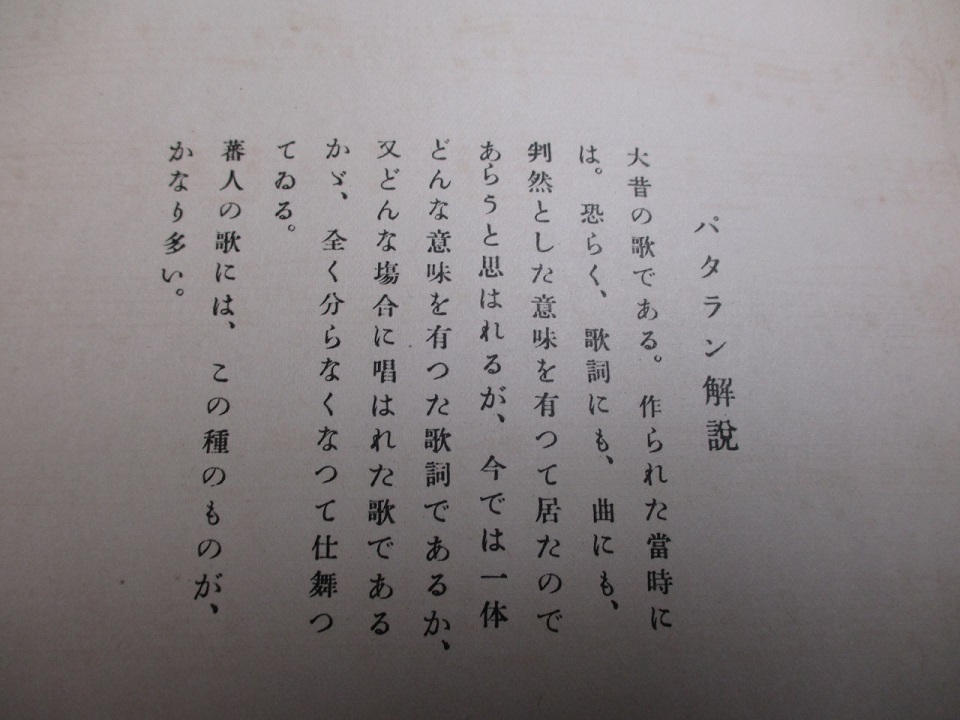 パタラン解說
大昔の歌である。作られた當時に
は。恐らく、歌詞にも、曲にも、
判然とした意味を有つて居たので
あらうと思はれるが、今では一体
どんな意味を有つた歌詞であるか、
又どんな塲合に唱はれた歌である
かゞ、全く分らなくなつて仕舞つ
てゐる。
蕃人の歌には、この種のものが、
かなり多い。